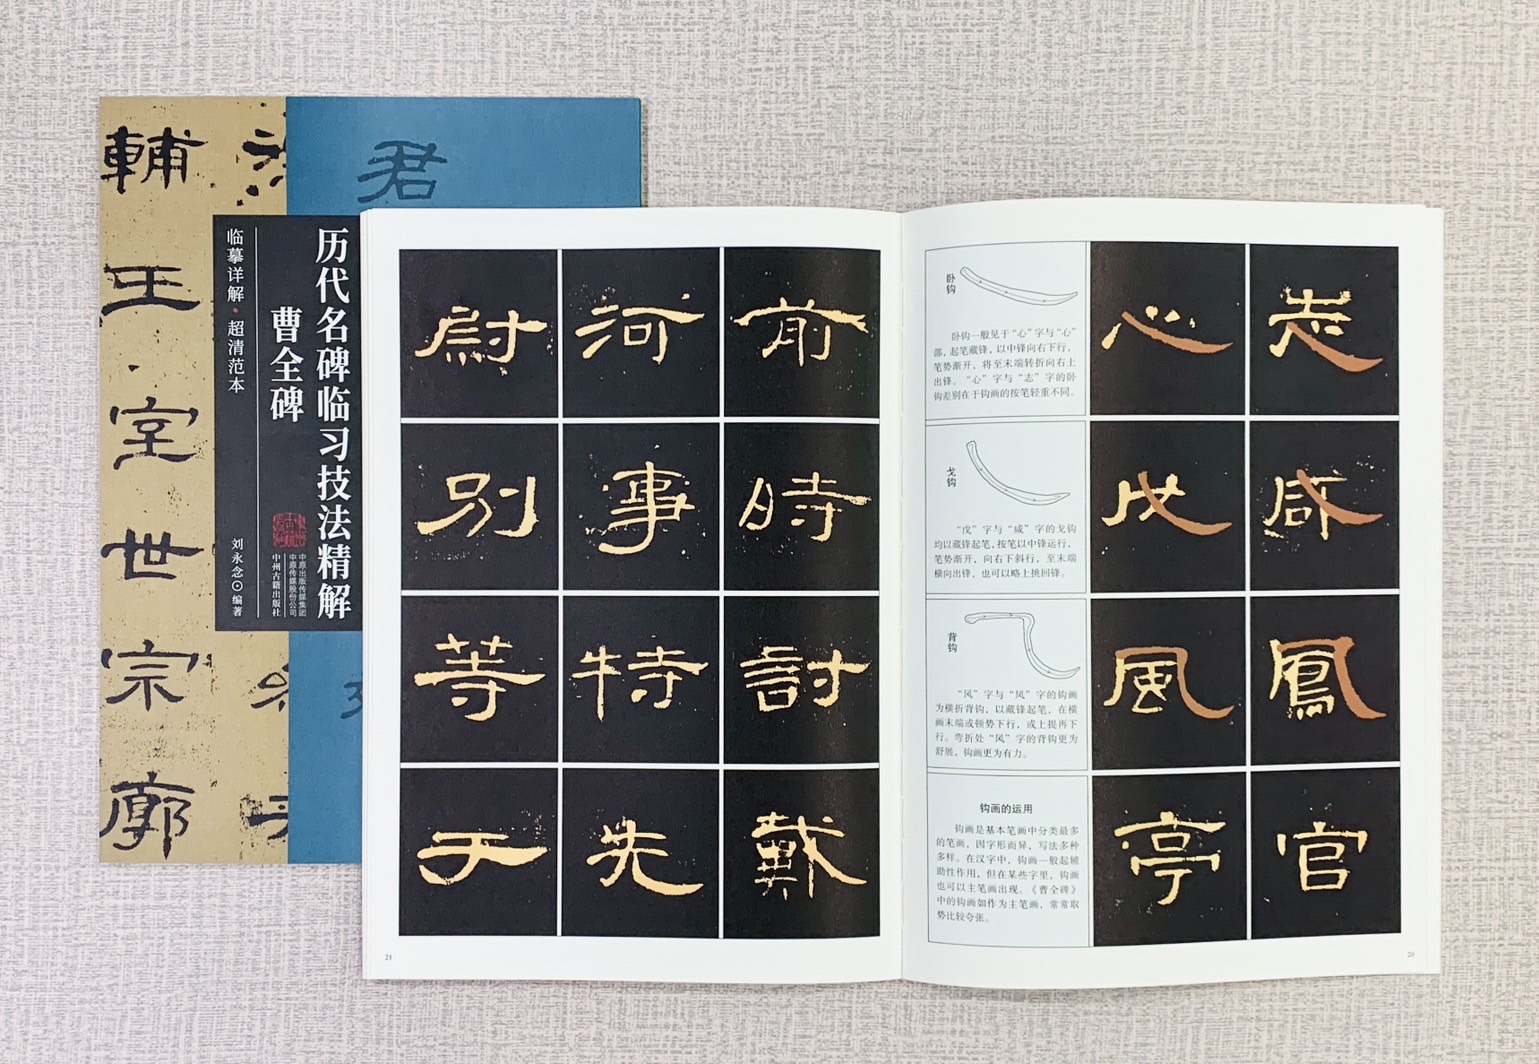 輔
王
室
世
宗
廓
君
历代名碑临习技法精解
曹全碑
临摹详解·超清范本
刘永念⊙编著
中原出版传媒集团
中原传媒股份公司
中州古籍出版社
尉 河 前
別 事 時
等 特 討
于 先 戴
21
卧钩
卧钩一般见于“心”字与“心”
部，起笔藏锋，以中锋向右下行，
笔势渐开，将至末端转折向右上
出锋。“心”字与“志”字的卧
钩差别在于钩画的按笔轻重不同。
心 志
戈钩
“戊”字与“咸”字的戈钩
均以藏锋起笔，按笔以中锋运行，
笔势渐开，向右下斜行，至末端
横向出锋，也可以略上挑回锋。
戊 咸
背钩
“风”字与“凤”字的钩画
为横折背钩，以藏锋起笔，在横
画末端或顿势下行，或上提再下
行。弯折处“风”字的背钩更为
舒展，钩画更为有力。
風 鳳
钩画的运用
钩画是基本笔画中分类最多
的笔画，因字形而异，写法多种
多样。在汉字中，钩画一般起辅
助性作用，但在某些字里，钩画
也可以主笔画出现。《曹全碑》
中的钩画如作为主笔画，常常取
势比较夸张。
亭 官
20